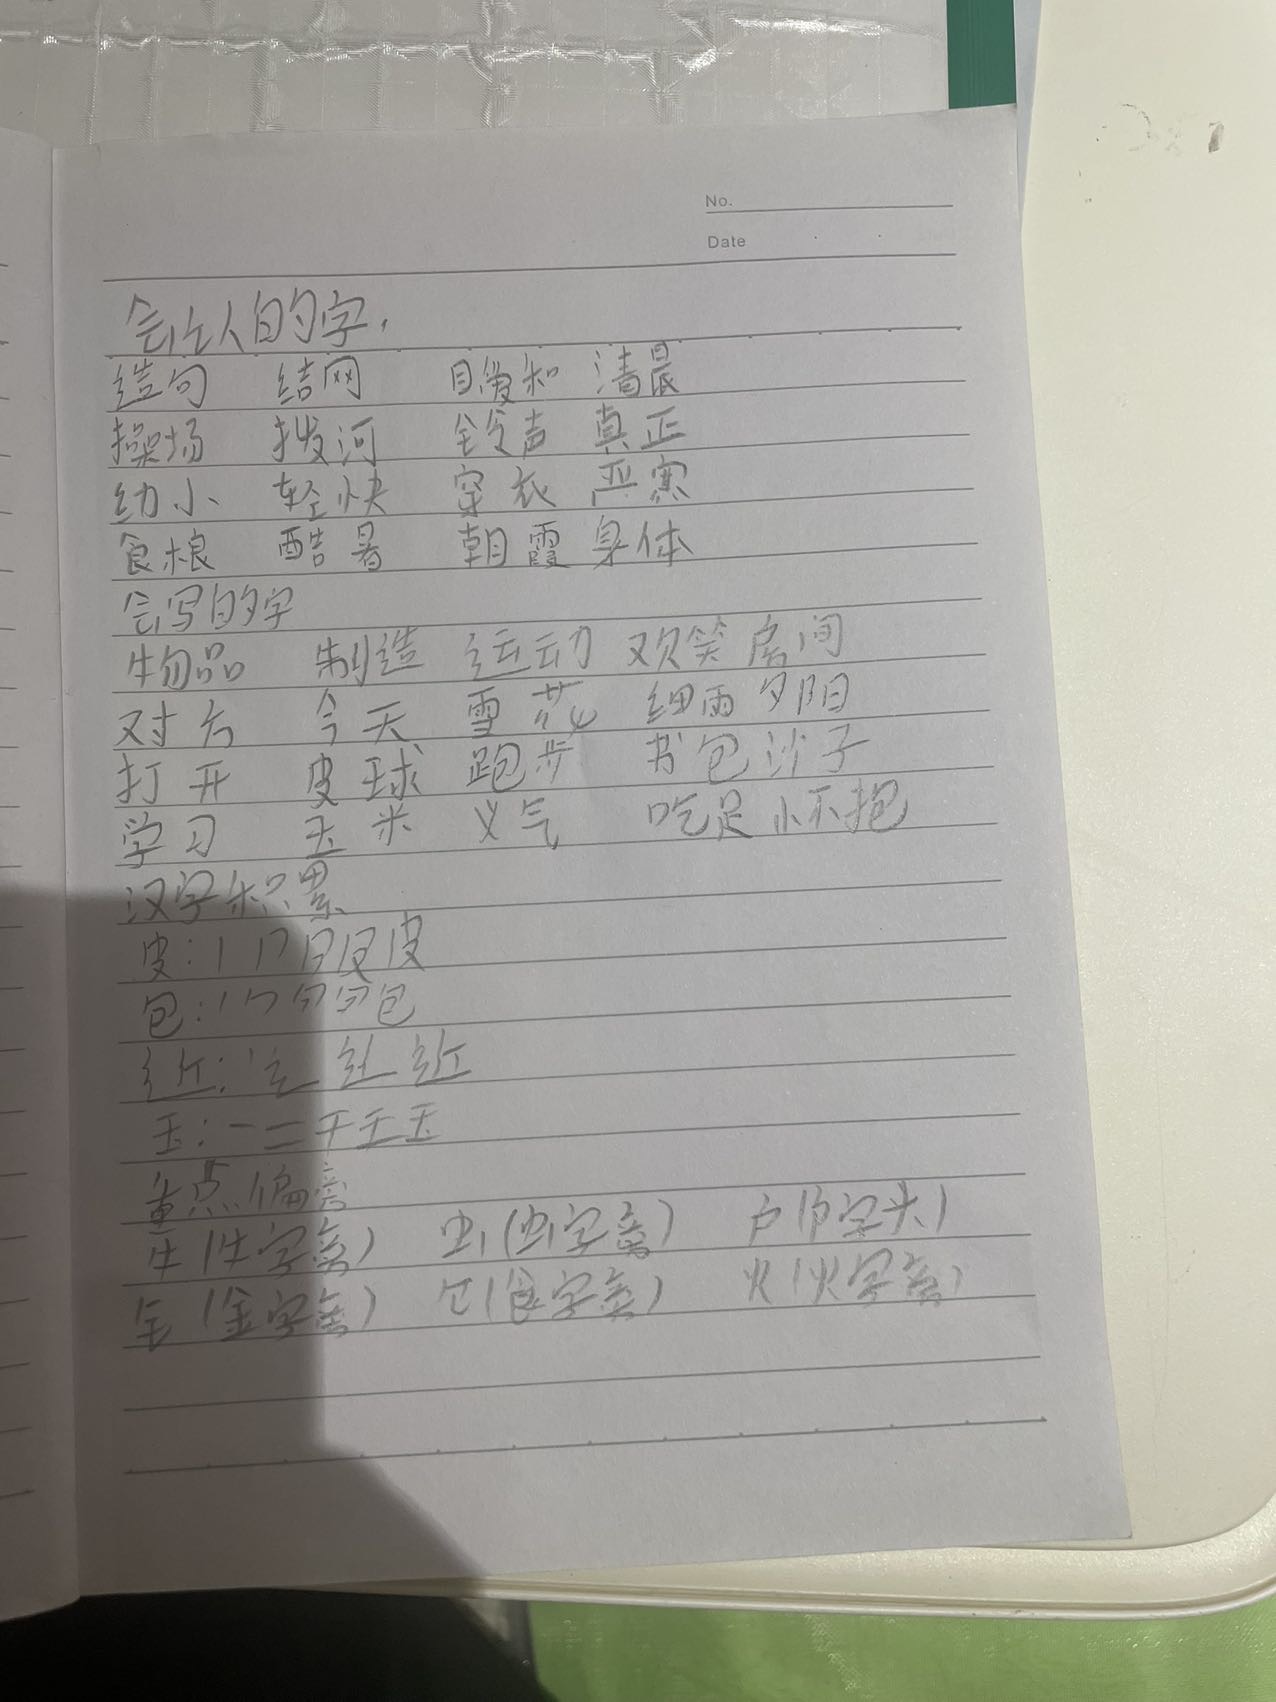 No.
Date
会认的字.
造句 结网 暖和 清晨
操场 拨河 铃声 真正
幼小 轻快 穿衣 严寒
食粮 酷暑 朝霞 身体
会写的字
物品 制造 运动 欢笑 房间
对右 今天 雪花 细雨 夕阳
打开 皮球 跑步 书包 沙子
学习 玉米 义气 吃足 怀抱
汉字积累
皮:
包:
近:
玉: 一 二 干 王 玉
重点偏旁
牜(牛字旁) 虫(虫字旁) 户(户字头)
钅(金字旁) 饣(食字旁) 火(火字旁)